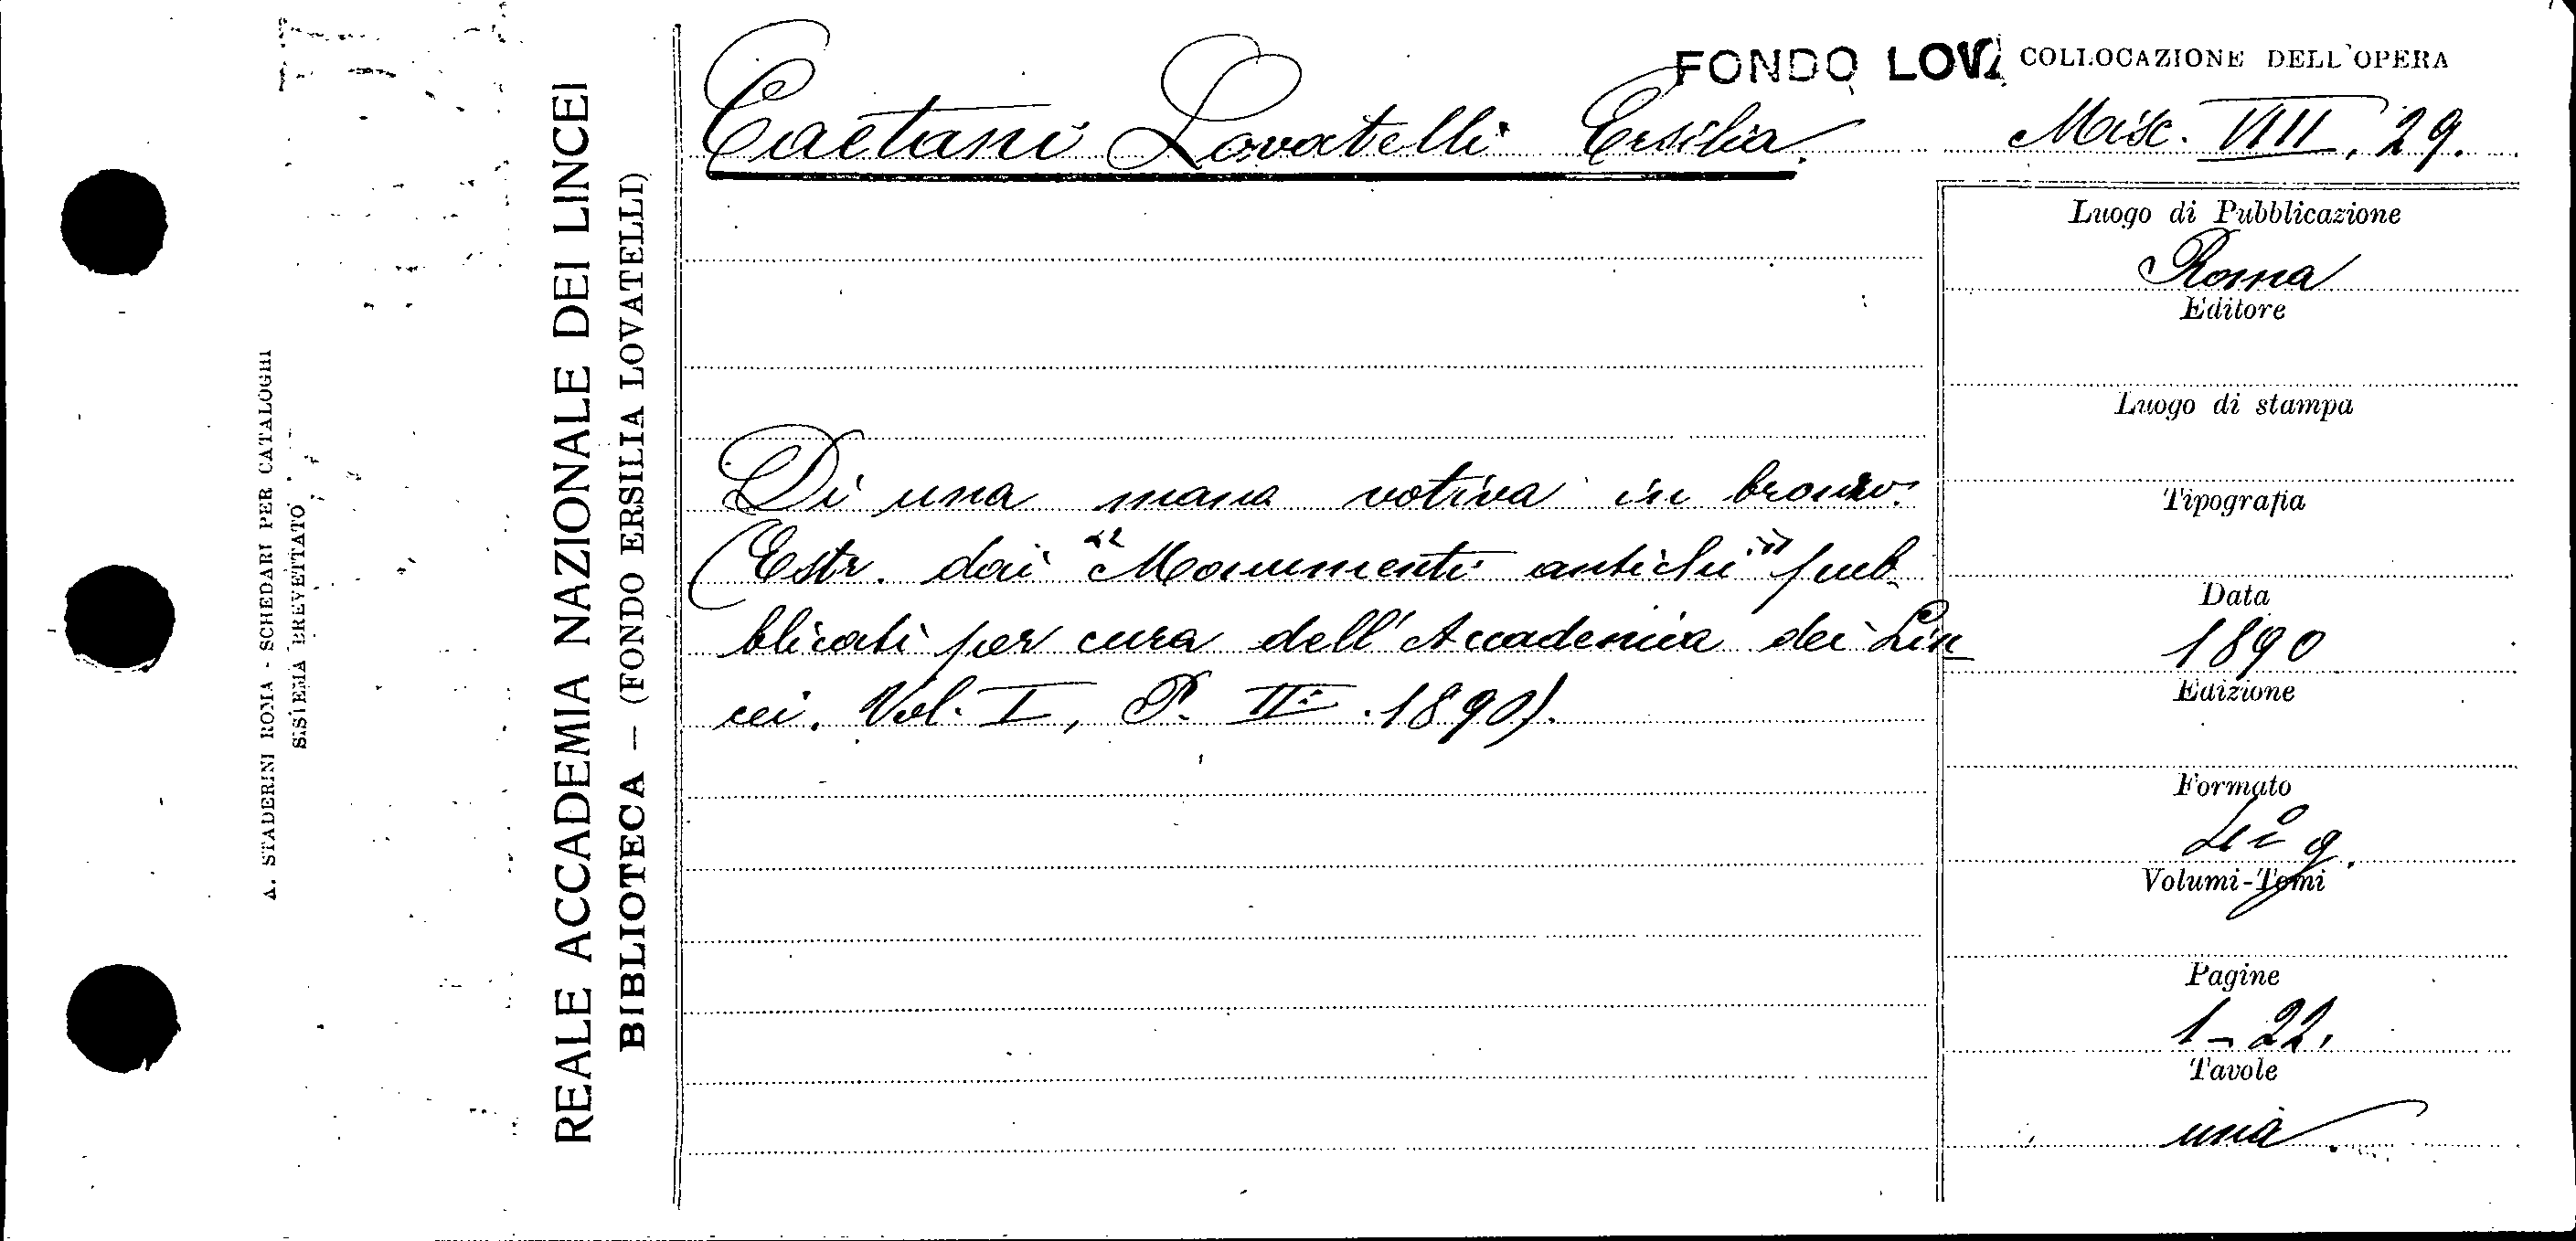 A. STADERINI ROMA - SCHEDARI PER CATALOGHI
SISTEMA BREVETTATO
REALE ACCADEMIA NAZIONALE DEI LINCEI
BIBLIOTECA — (FONDO ERSILIA LOVATELLI)
FONDO LOVA
COLLOCAZIONE DELL'OPERA
Caetani Lovatelli Ersilia.
Misc. VIII, 29.
Di una mano votiva in bronzo.
(Estr. dai "Monumenti antichi" pub-
blicati per cura dell'Accademia dei Lin-
cei. Vol. I, P. II. 1890).
Luogo di Pubblicazione
Roma
Editore
Luogo di stampa
Tipografia
Data
1890
Edizione
Formato
in 4° g.
Volumi-Tomi
Pagine
1-22.
Tavole
una.